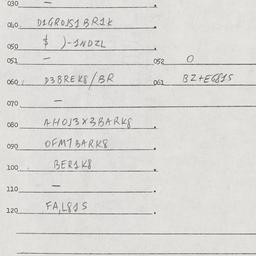 030 —
040 D1GROJS1 BR1K
050 $ )-1NDZL
051 — 052 O
060 D3BREK8/BR 061 BZ+EQ81S
070 —
080 AHOJ3X3BARK8
090 OFM7BARK8
100 BER1K8
110 —
120 FA,L81S